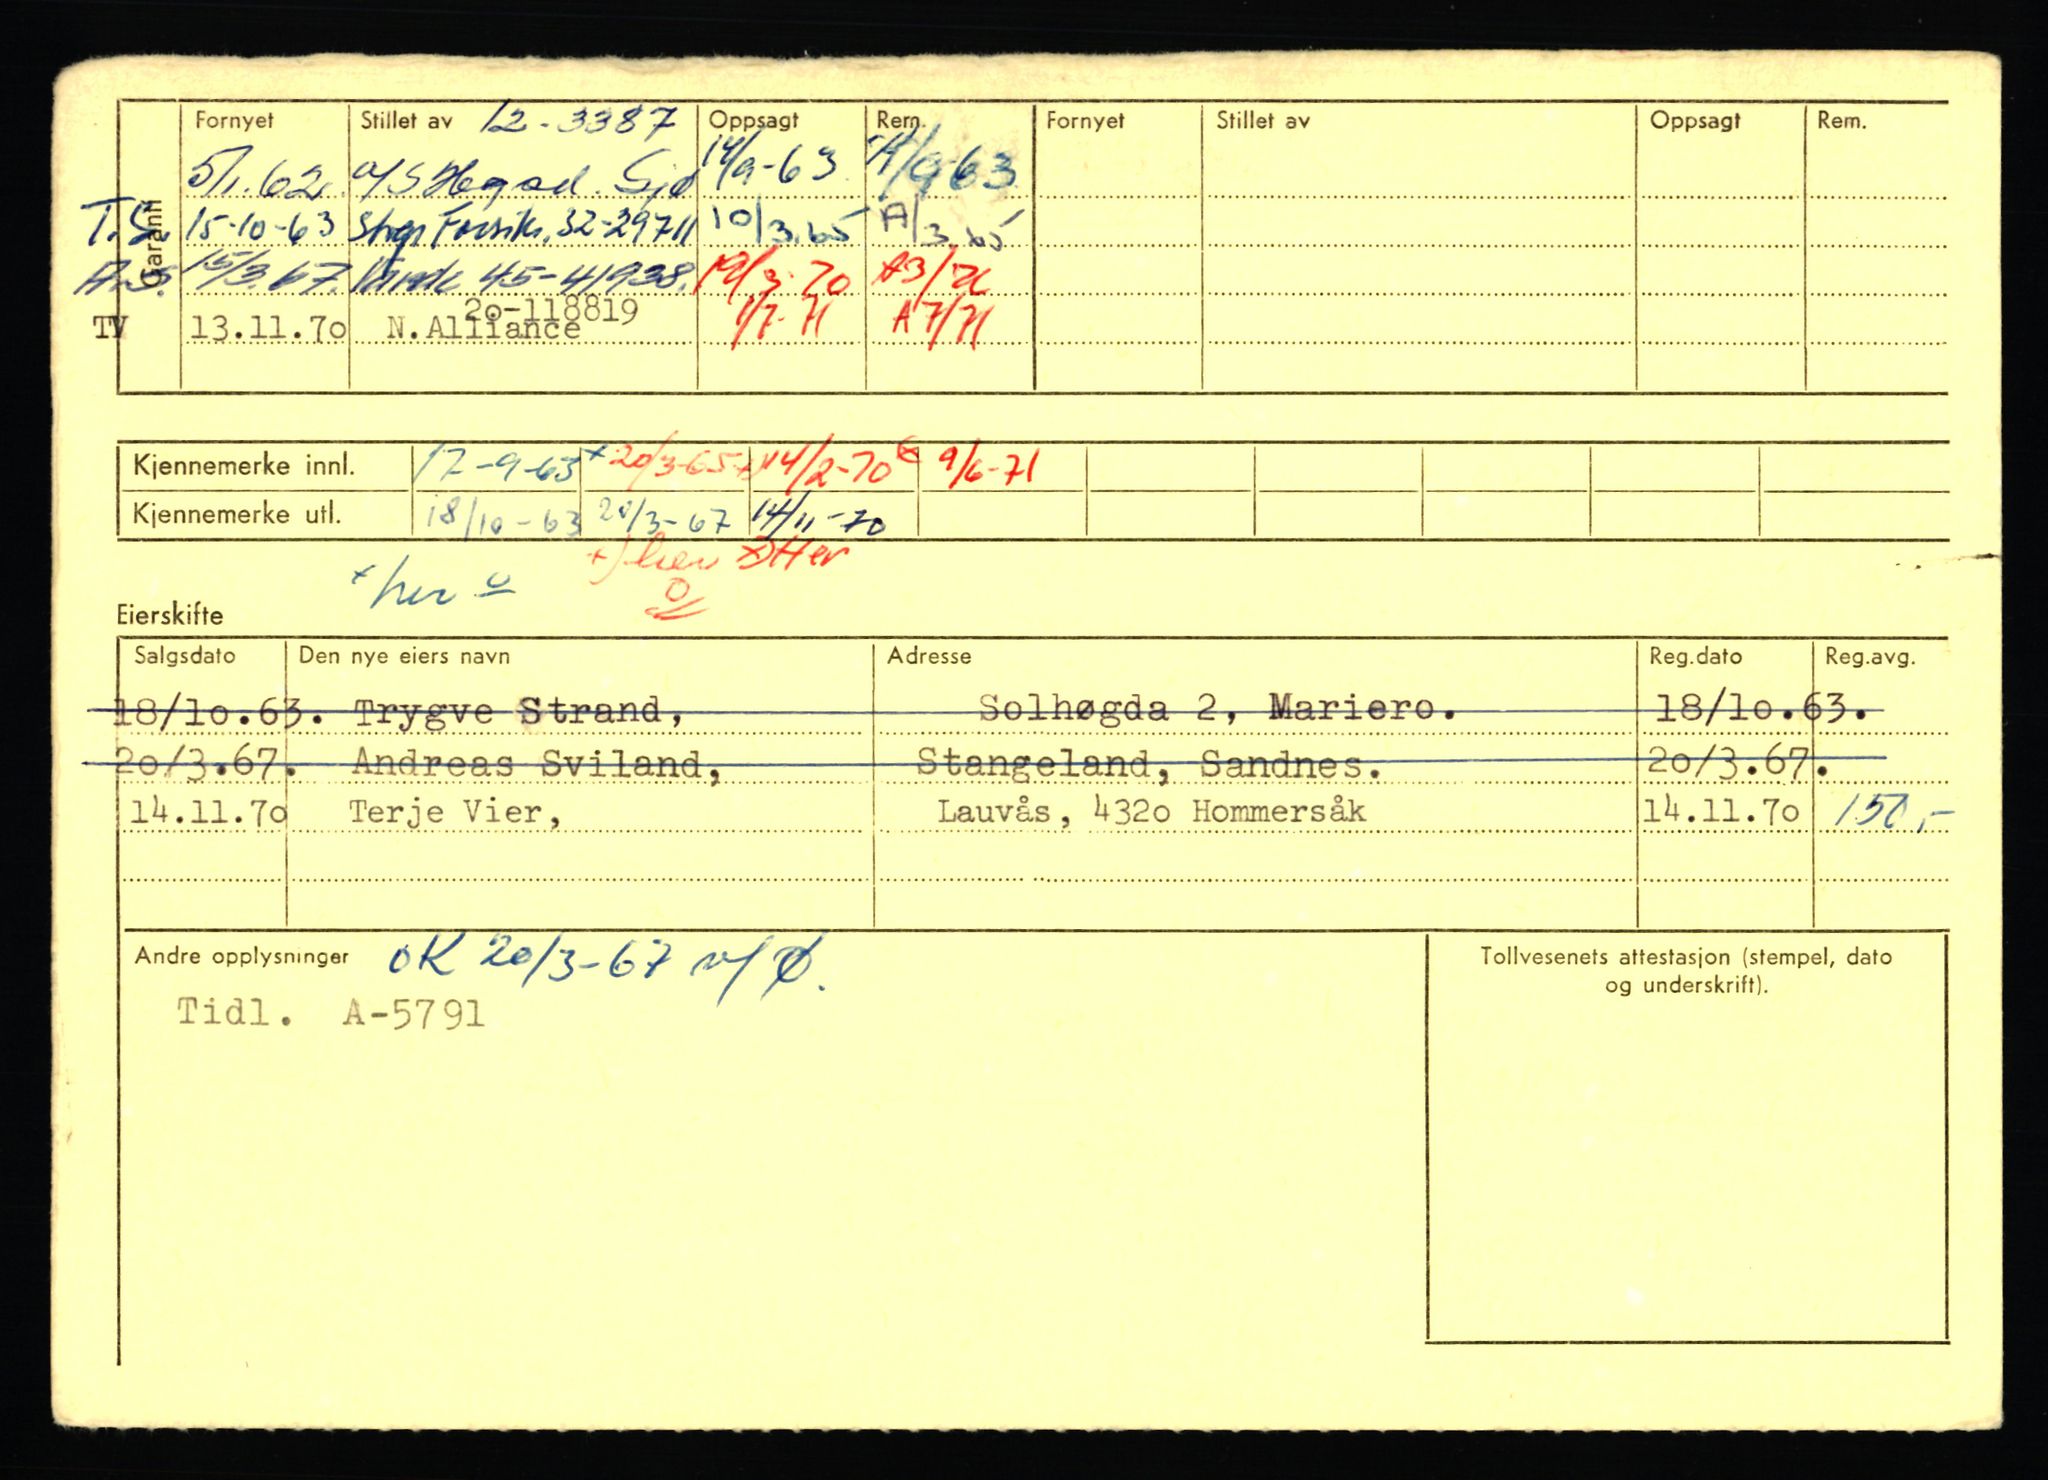 Garanti
Fornyet Stillet av 12-3387 Oppsagt Rem. Fornyet Stillet av Oppsagt Rem.
5/1.62. 14/9-63 A/9-63
T.S. 15-10-63 Forsik. 32-29711 10/3.65 A/3.65
A.S. 15/3.67. 45-41938. 19/3-70 A3/70
20-118819
TV 13.11.70 N.Alliance 1/7-71 A7/71
Kjennemerke innl. 17-9-63 + 20/3-65 +) 14/2-70 9/6-71
Kjennemerke utl. 18/10-63 20/3-67 14/11-70
+ her +) her Her
Eierskifte
Salgsdato Den nye eiers navn Adresse Reg.dato Reg.avg.
18/10.63. Trygve Strand, Solhøgda 2, Mariero. 18/10.63.
20/3.67. Andreas Sviland, Stangeland, Sandnes. 20/3.67.
14.11.70 Terje Vier, Lauvås, 4320 Hommersåk 14.11.70 150,-
Andre opplysninger OK 20/3-67 Ø.
Tidl. A-5791
Tollvesenets attestasjon (stempel, dato
og underskrift).